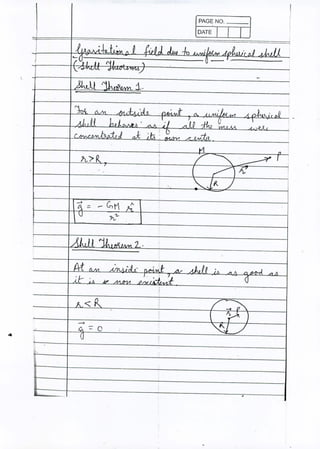 PAGE NO.
DATE
Gravitational field due to uniform spherical shell
(Shell Theorems)
Shell Theorem 1.
For an outside point, a uniform spherical
shell behaves as if all the mass were
concentrated at its own centre.
M
r>R, r P
R
g = - GM r̂
r²
Shell Theorem 2.
At an inside point, a shell is as good as
it is non existent.
r<R
r P
R
g = 0